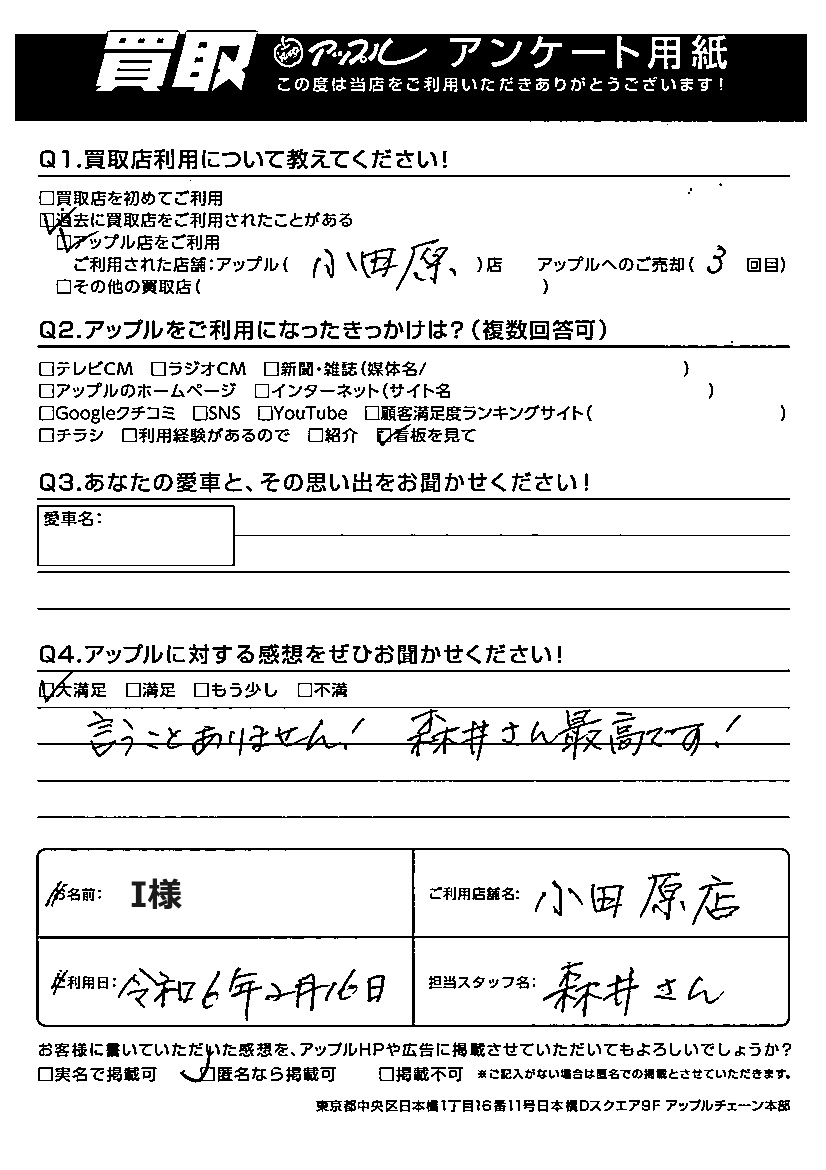 買取 アップル アンケート用紙
この度は当店をご利用いただきありがとうございます!
Q1.買取店利用について教えてください!
□買取店を初めてご利用
□過去に買取店をご利用されたことがある
□アップル店をご利用
ご利用された店舗:アップル( 小田原 )店 アップルへのご売却( 3 回目)
□その他の買取店( )
Q2.アップルをご利用になったきっかけは?(複数回答可)
□テレビCM □ラジオCM □新聞・雑誌(媒体名/ )
□アップルのホームページ □インターネット(サイト名 )
□Googleクチコミ □SNS □YouTube □顧客満足度ランキングサイト( )
□チラシ □利用経験があるので □紹介 □看板を見て
Q3.あなたの愛車と、その思い出をお聞かせください!
愛車名:
Q4.アップルに対する感想をぜひお聞かせください!
□大満足 □満足 □もう少し □不満
言うことありません! 森井さん最高です!
お名前: I様
ご利用店舗名: 小田原店
ご利用日: 令和6年2月16日
担当スタッフ名: 森井さん
お客様に書いていただいた感想を、アップルHPや広告に掲載させていただいてもよろしいでしょうか?
□実名で掲載可 □匿名なら掲載可 □掲載不可 ※ご記入がない場合は匿名での掲載とさせていただきます。
東京都中央区日本橋1丁目16番11号日本橋Dスクエア9F アップルチェーン本部